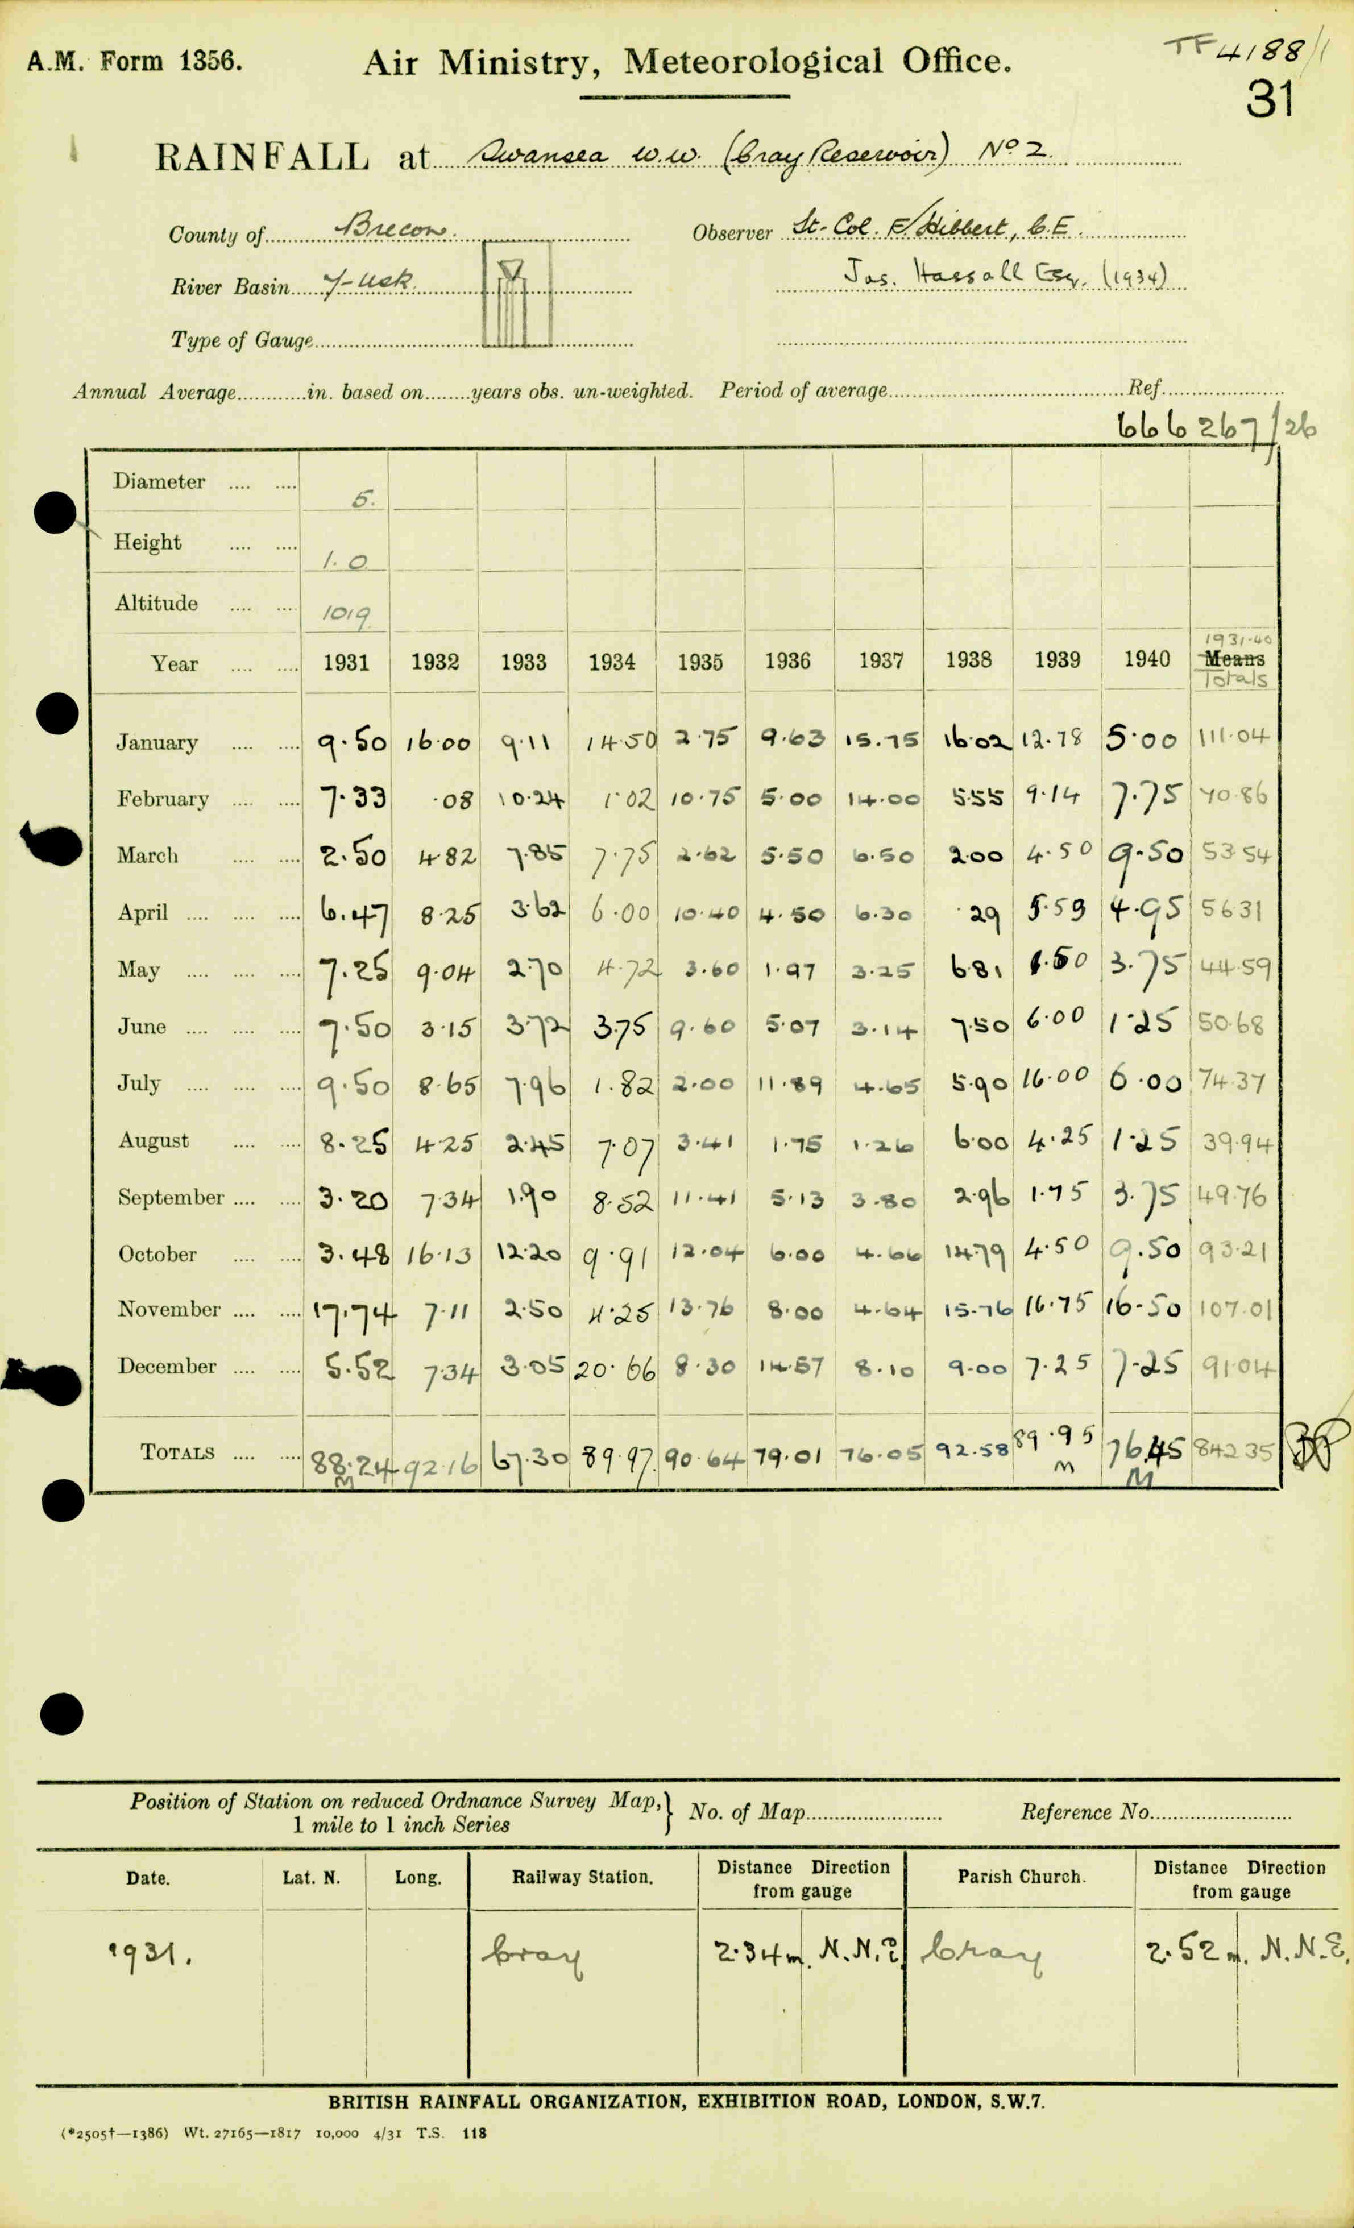 A.M. Form 1356.
Air Ministry, Meteorological Office.
TF 4188/1
31
RAINFALL at Swansea W.W. (Cray Reservoir) No 2
County of Brecon. Observer Lt-Col. F Hibbert, C.E.
River Basin 7-Usk. Jas. Hassall Esq. (1934)
Type of Gauge
Annual Average in. based on years obs. un-weighted. Period of average Ref.
666267/26
Diameter 5.
Height 1.0
Altitude 1019
1931-40
Year 1931 1932 1933 1934 1935 1936 1937 1938 1939 1940 Means
Totals
January 9.50 16.00 9.11 14.50 2.75 9.63 15.75 16.02 12.78 5.00 111.04
February 7.33 .08 10.24 1.02 10.75 5.00 14.00 5.55 9.14 7.75 70.86
March 2.50 4.82 7.85 7.75 2.62 5.50 6.50 2.00 4.50 9.50 53.54
April 6.47 8.25 3.62 6.00 10.40 4.50 6.30 .29 5.53 4.95 56.31
May 7.25 9.04 2.70 4.72 3.60 1.97 3.25 6.81 1.50 3.75 44.59
June 7.50 3.15 3.72 3.75 9.60 5.07 3.14 7.50 6.00 1.25 50.68
July 9.50 8.65 7.96 1.82 2.00 11.89 4.65 5.90 16.00 6.00 74.37
August 8.25 4.25 2.45 7.07 3.41 1.75 1.26 6.00 4.25 1.25 39.94
September 3.20 7.34 1.90 8.52 11.41 5.13 3.80 2.96 1.75 3.75 49.76
October 3.48 16.13 12.20 9.91 12.04 6.00 4.66 14.79 4.50 9.50 93.21
November 17.74 7.11 2.50 4.25 13.76 8.00 4.64 15.76 16.75 16.50 107.01
December 5.52 7.34 3.05 20.66 8.30 14.57 8.10 9.00 7.25 7.25 91.04
TOTALS 88.24 92.16 67.30 89.97 90.64 79.01 76.05 92.58 89.95 76.45 842.35
M M M
Position of Station on reduced Ordnance Survey Map, No. of Map Reference No.
1 mile to 1 inch Series
Date. Lat. N. Long. Railway Station. Distance Direction from gauge Parish Church. Distance Direction from gauge
1931. Cray 2.34 m. N.N.E. Cray 2.52 m. N.N.E.
BRITISH RAINFALL ORGANIZATION, EXHIBITION ROAD, LONDON, S.W.7.
(*2505†—1386) Wt. 27165—1817 10,000 4/31 T.S. 118